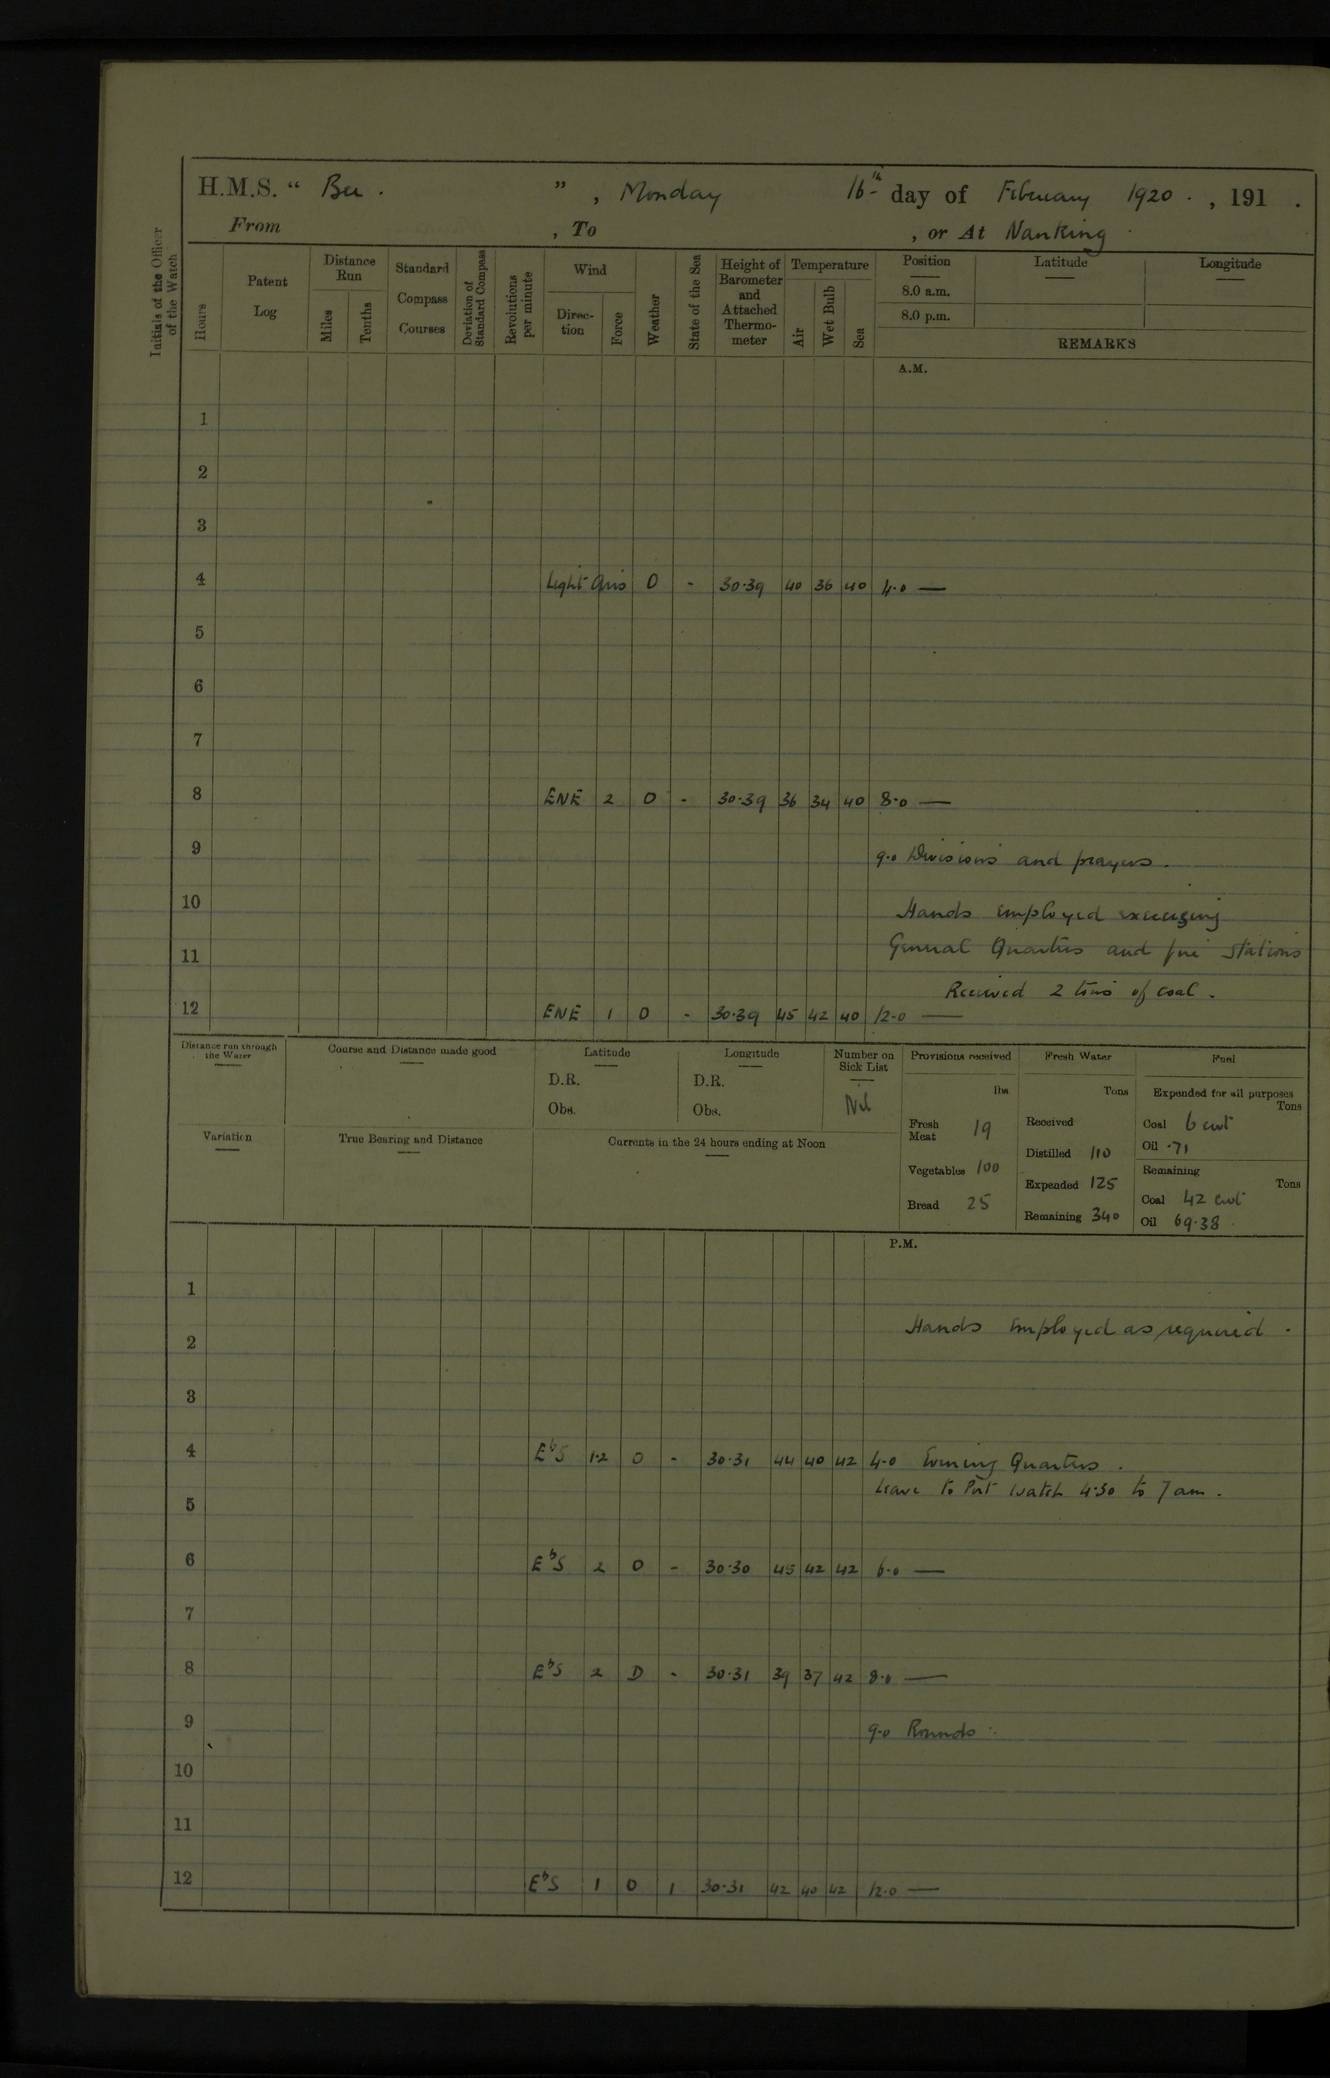 H.M.S. " Bee . " , Monday 16th day of February 1920 . , 191 .
From , To , or At Nanking
Initials of the Officer of the Watch
Hours
Patent Log
Distance Run
Miles
Tenths
Standard Compass Courses
Deviation of Standard Compass
Revolutions per minute
Wind
Direction
Force
Weather
State of the Sea
Height of Barometer and Attached Thermometer
Temperature
Air
Wet Bulb
Sea
Position
8.0 a.m.
8.0 p.m.
Latitude
Longitude
REMARKS
A.M.
1
2
3
4 Light Airs O - 30.39 40 36 40 4.0 —
5
6
7
8 ENE 2 O - 30.39 36 34 40 8.0 —
9 9.0 Divisions and prayers .
10 Hands employed exercising
11 General Quarters and fire stations
Received 2 tons of coal .
12 ENE 1 O - 30.39 45 42 40 12.0 —
Distance run through the Water
Course and Distance made good
Latitude
D.R.
Obs.
Longitude
D.R.
Obs.
Number on Sick List
Nil
Provisions received
lbs
Fresh Meat 19
Vegetables 100
Bread 25
Fresh Water
Tons
Received
Distilled 110
Expended 125
Remaining 340
Fuel
Expended for all purposes
Tons
Coal 6 cwt
Oil .71
Remaining
Tons
Coal 42 cwt
Oil 69.38
Variation
True Bearing and Distance
Currents in the 24 hours ending at Noon
P.M.
1
2 Hands employed as required .
3
4 EbS 1.2 O - 30.31 44 40 42 4.0 Evening Quarters .
Leave to Port Watch 4.30 to 7 am .
5
6 EbS 2 O - 30.30 45 42 42 6.0 —
7
8 EbS 2 O - 30.31 39 37 42 8.0 —
9 9.0 Rounds .
10
11
12 EbS 1 O 1 30.31 42 40 42 12.0 —